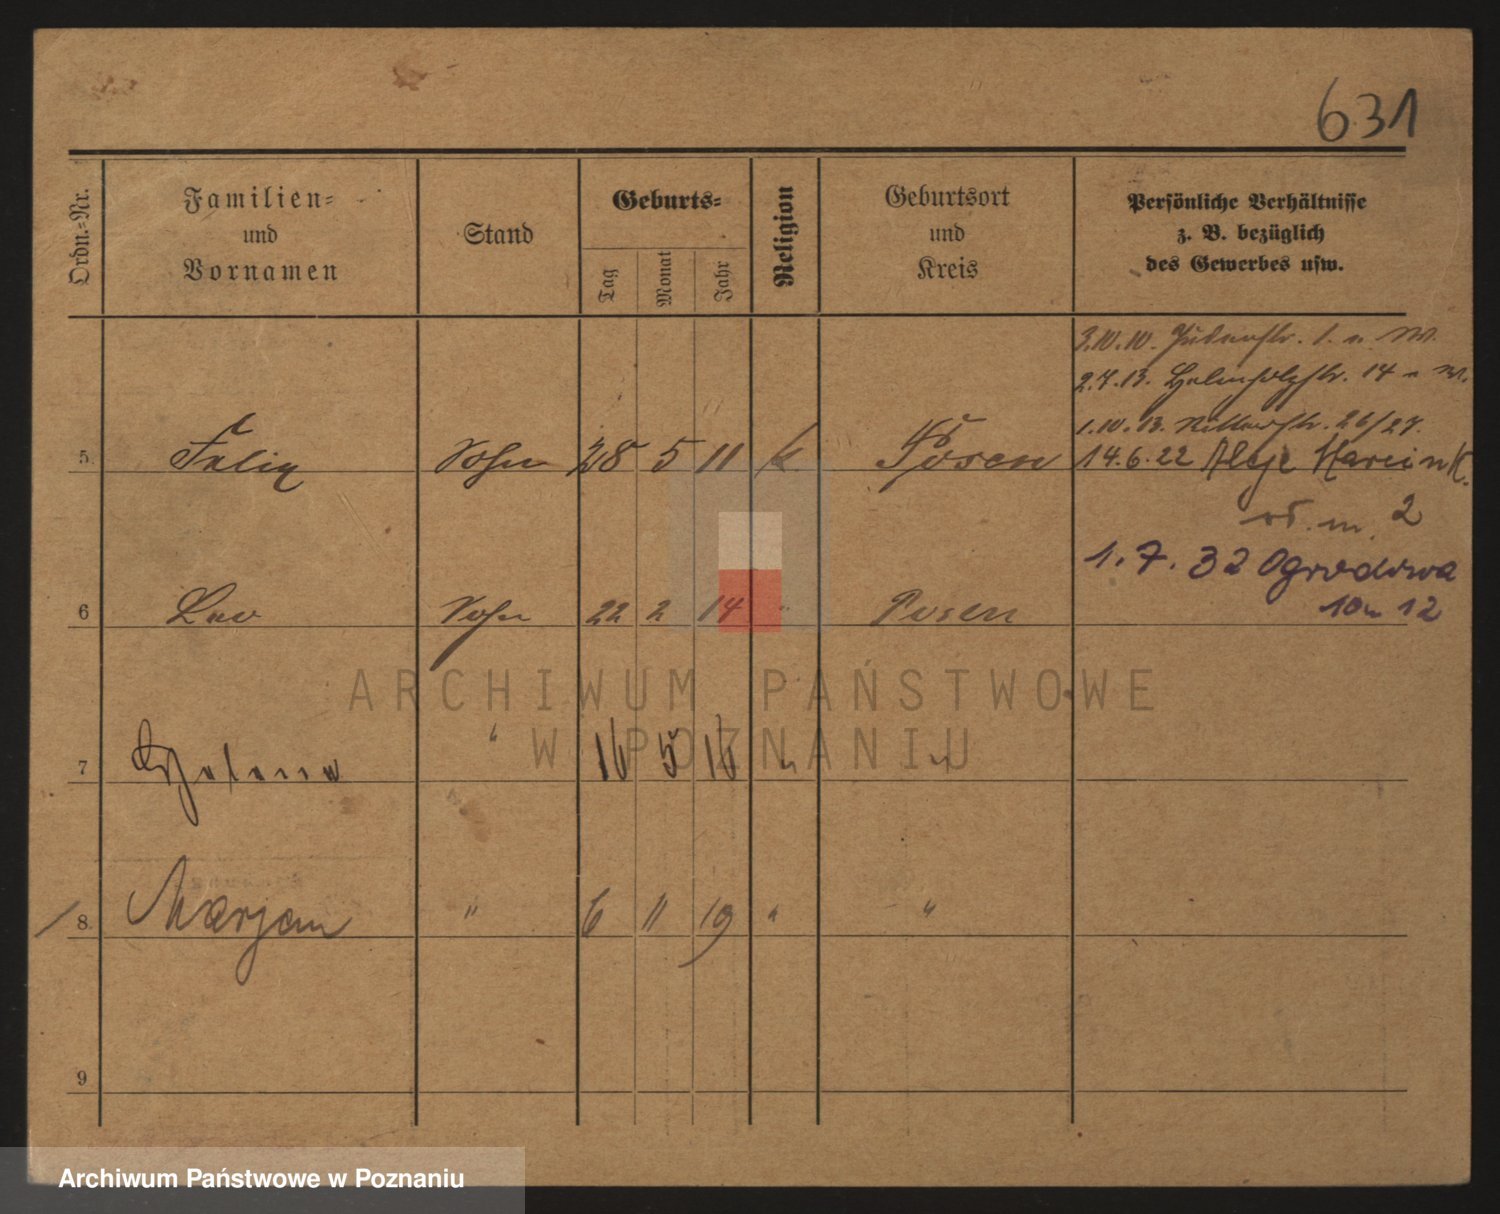 631
Ordn.-Nr.
Familien-
und
Vornamen
Stand
Geburts-
Tag
Monat
Jahr
Religion
Geburtsort
und
Kreis
Persönliche Verhältnisse
z. B. bezüglich
des Gewerbes usw.
3.10.10. Judenstr. 1. n. W.
2.7.13. 14
1.10.13. Ritterstr. 26/27.
5. Felix Sohn 28 5 11 k Posen 14.6.22 Aleje Marcink.
m. 2
1.7.32 Ogrodowa
6 Leo Sohn 22 2 14 " Posen 10 m 12
7 " 16 5 16 " "
8. Marjan " 6 11 19 " "
9
ARCHIWUM PAŃSTWOWE
W POZNANIU
Archiwum Państwowe w Poznaniu